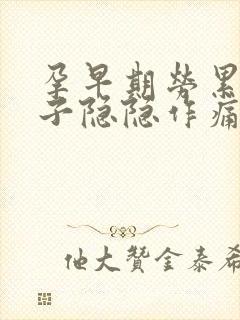 孕早期劳累
子隐隐作痛
他大赞金泰希